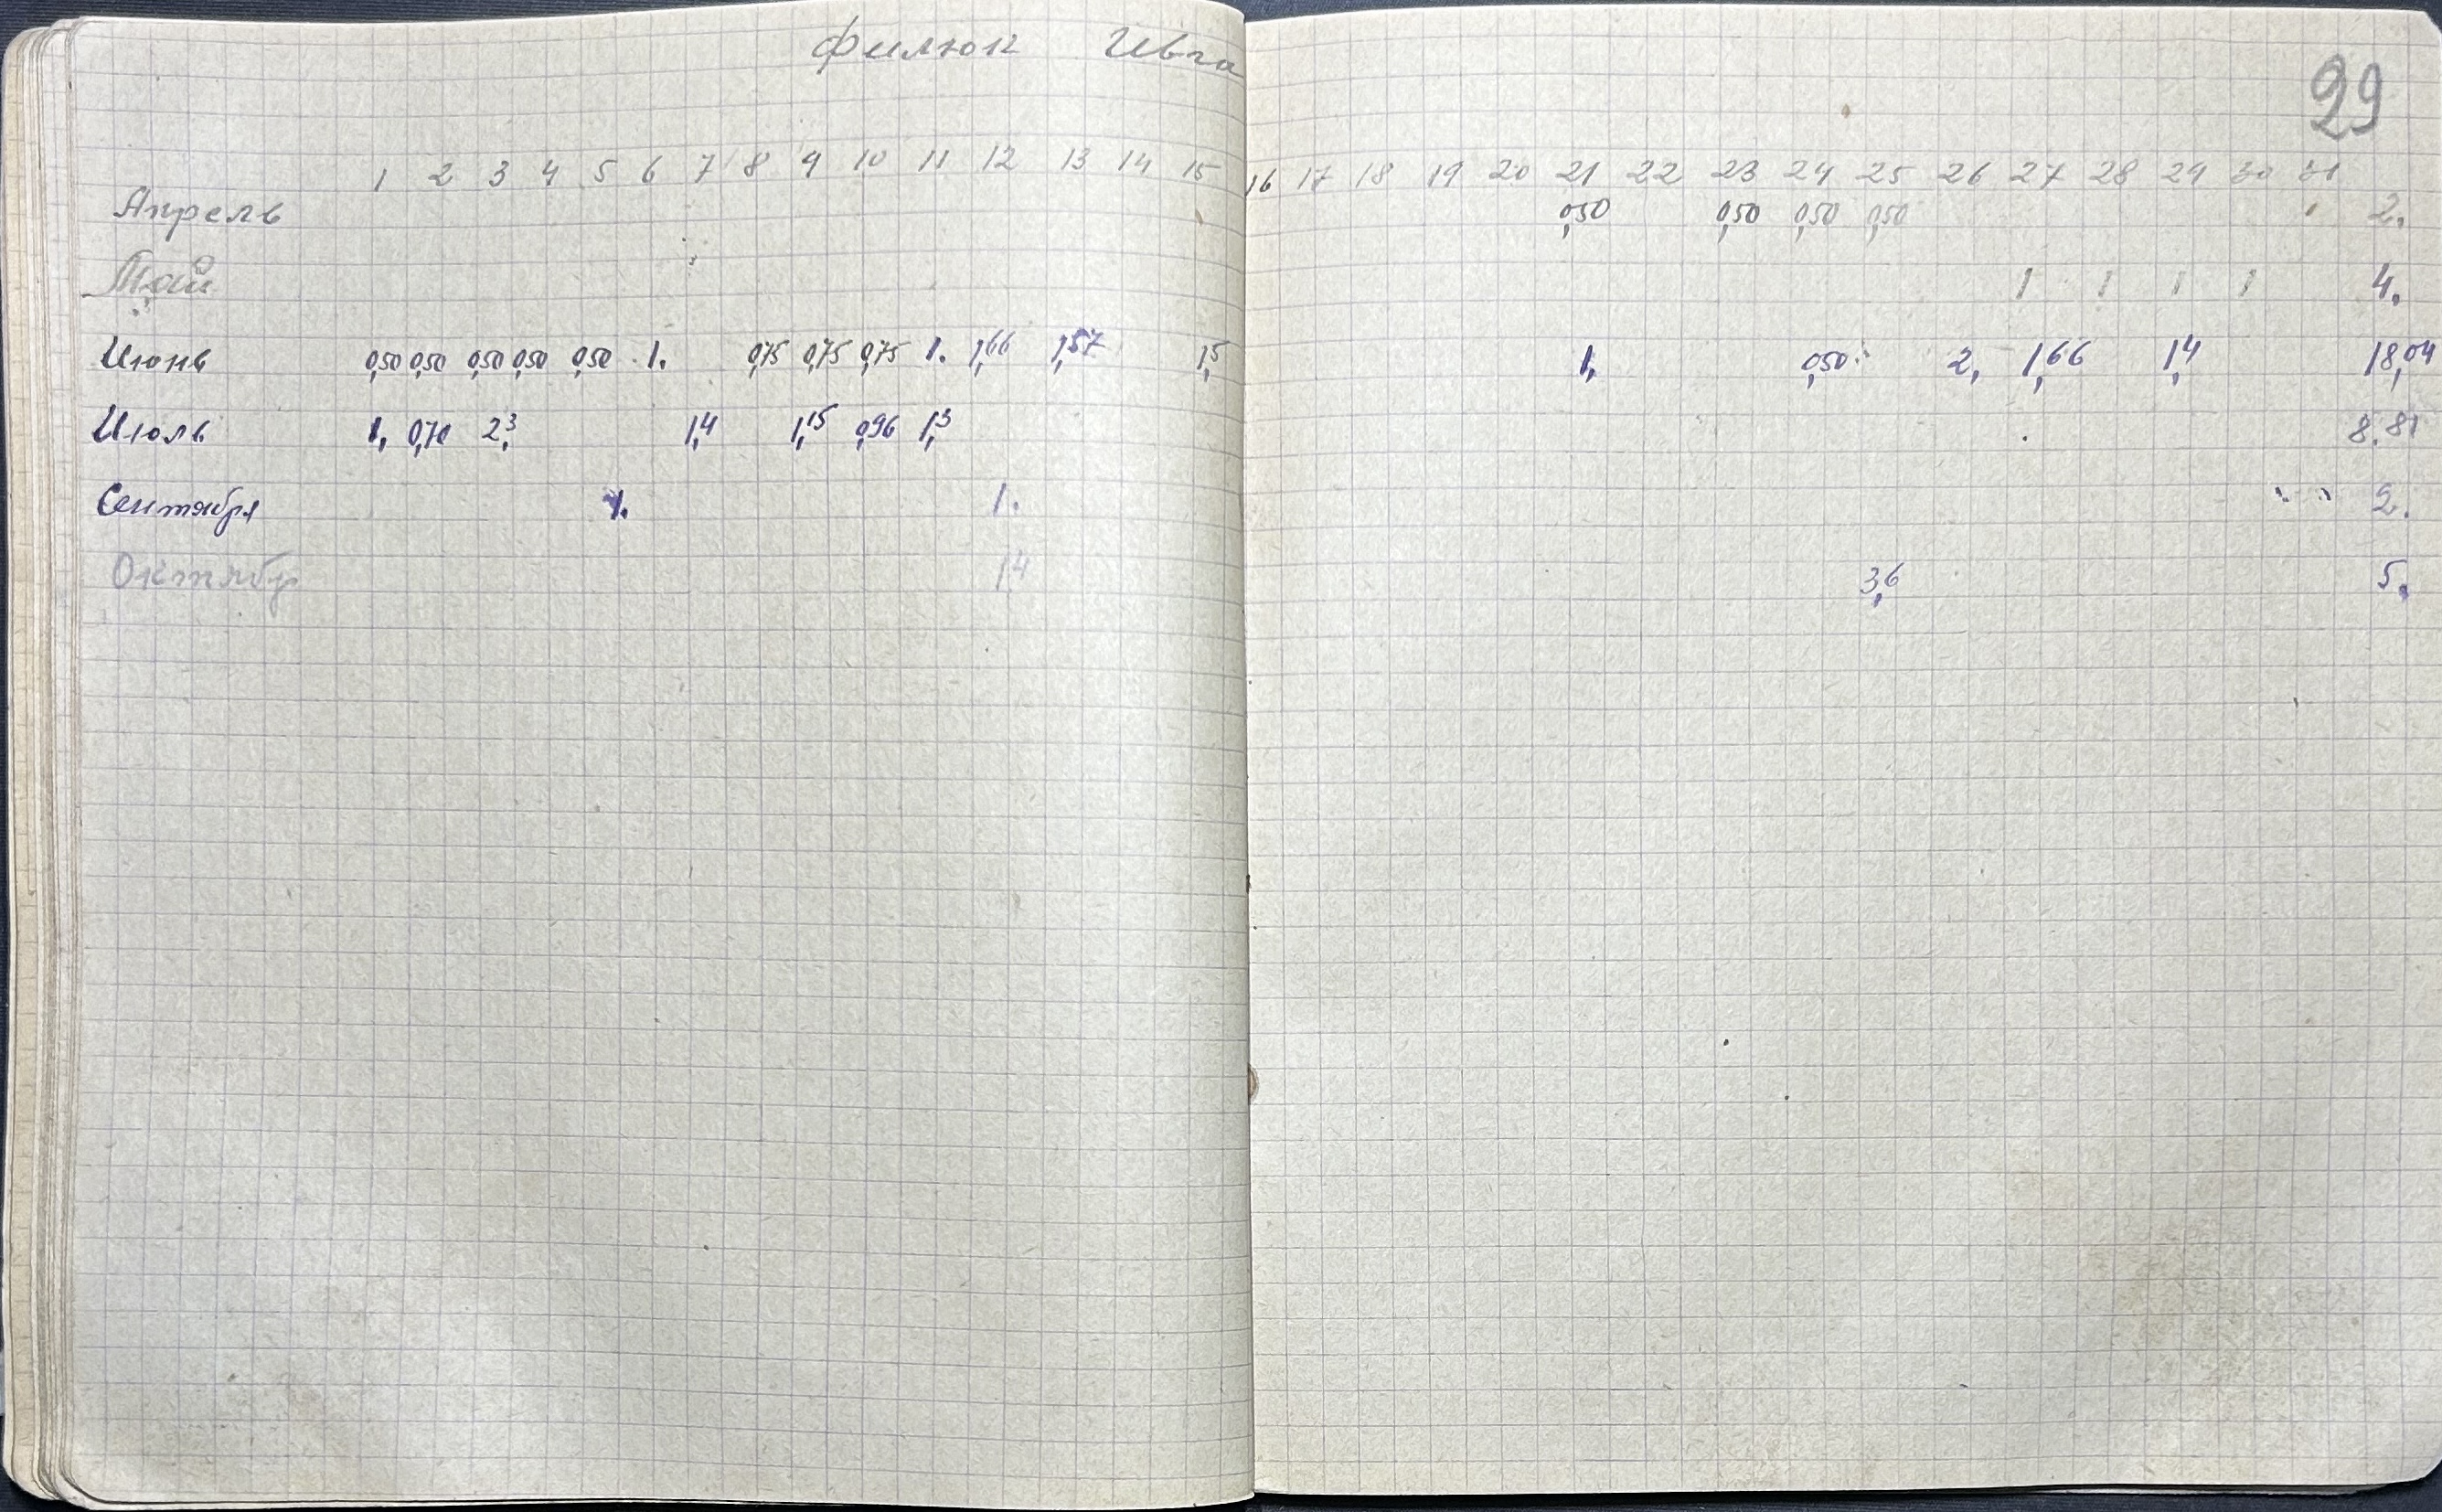 Филюк Ивга
29
1 2 3 4 5 6 7 8 9 10 11 12 13 14 15 16 17 18 19 20 21 22 23 24 25 26 27 28 29 30 31
Апрель 0,50 0,50 0,50 0,50 2.
Май 1 1 1 1 4.
Июнь 0,50 0,50 0,50 0,50 0,50 1. 0,75 0,75 0,75 1. 1,66 1,57 1,5 1, 0,50 2, 1,66 1,4 18,04
Июль 1, 0,70 2,3 1,4 1,15 0,96 1,3 8.81
Сентября 1. 1. 2.
Октябр 1,4 3,6 5.